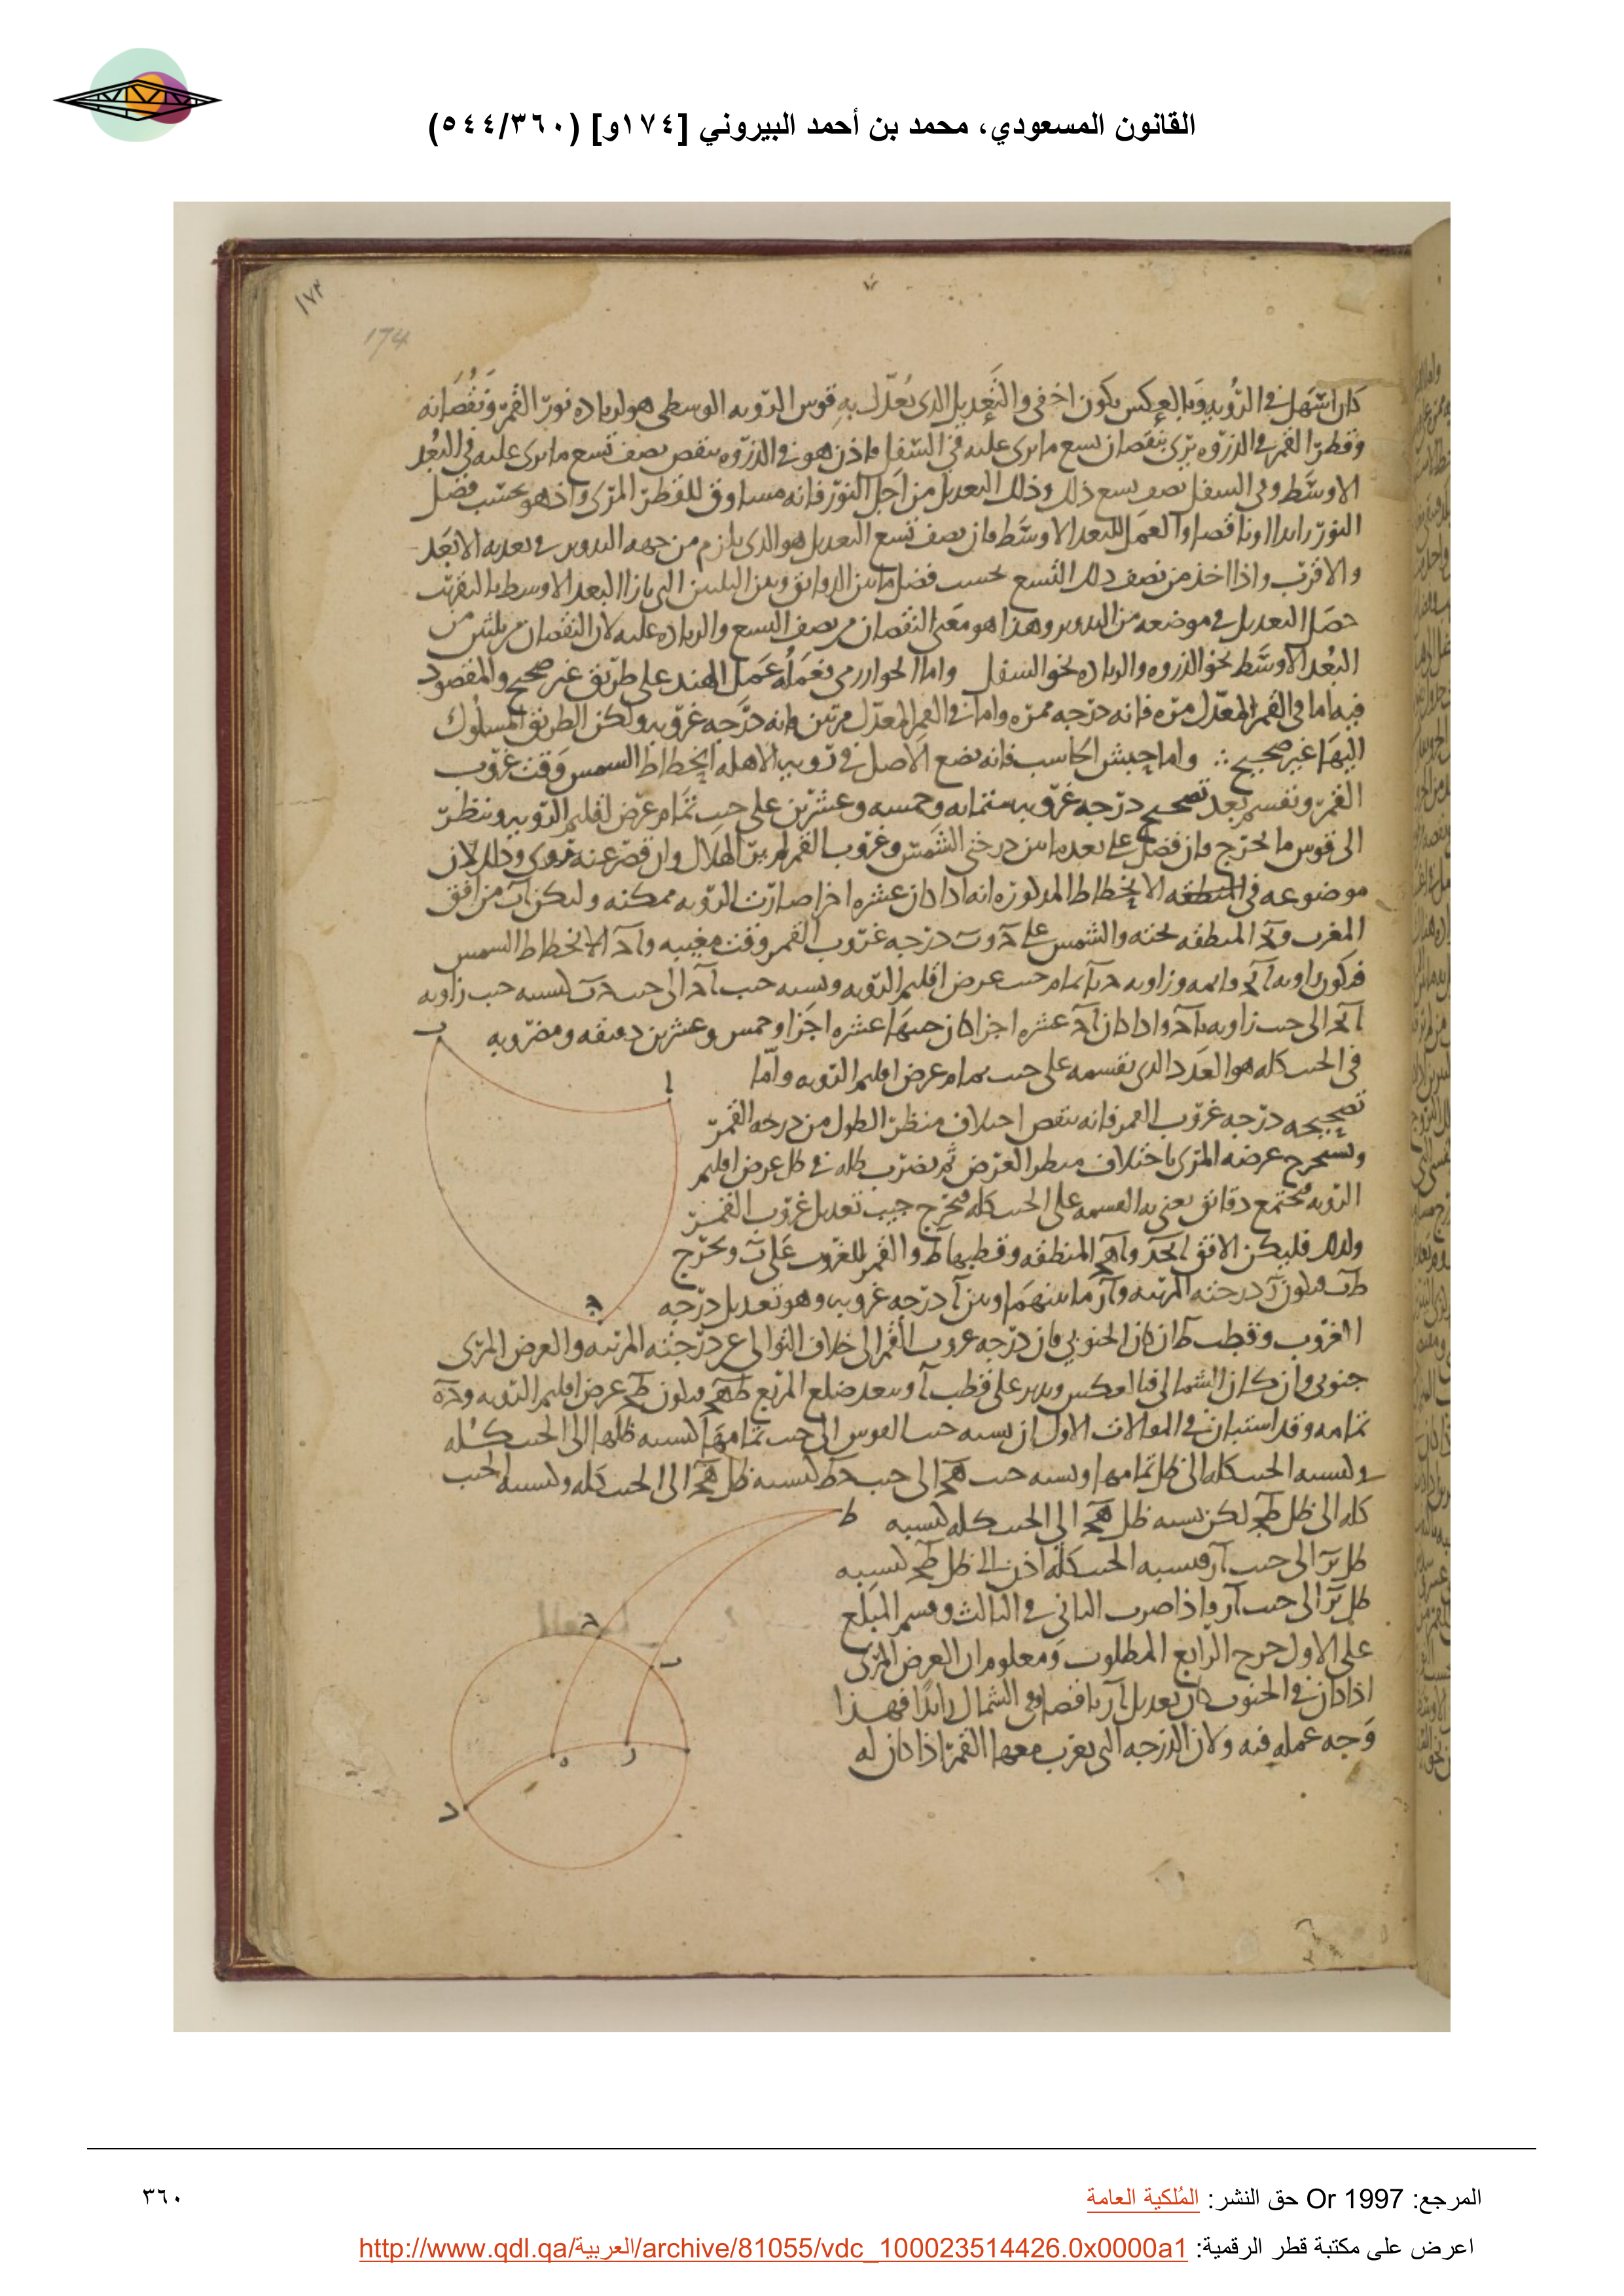 القانون المسعودي، محمد بن أحمد البيروني [١٧٤و] (٣٦٠/٥٤٤)
١٧٤
174
كان اسهل في الرؤية وبالعكس يكون اخفى والتعديل الذى يعدل به قوس الرويه الوسطى هو لزياده نور القمر ونقصانه
وقطر القمر في الذروه يرى بنقصان تسع ما يرى عليه في السفل فاذن هو في الذروه ينقص نصف تسع ما يرى عليه في البعد
الاوسط وفي السفل نصف تسع ذلك وذلك التعديل من اجل النور فانه مساوق للقطر المرئى واذ هو بحسب فضل
النور زايدا او ناقصا والعمل للبعد الاوسط فان نصف تسع التعديل هو الذى يلزم من جهه التدوير في بعديه الابعد
والاقرب واذا اخذ من نصف ذلك التسع بحسب فضل ما بين الدقائق وبين الثلثين التى بازا البعد الاوسط بالتقريب
حصل التعديل في موضعه من التدوير وهذا هو معنى النقصان من نصف التسع والزياده عليه لان النقصان من ثلثين من
البعد الاوسط نحو الذروه والزياده نحو السفل واما الخوارزمى فعمله عمل الهند على طريق غير صحيح والمقصود
فيه اما في القمر المعدل مره فانه درجه ممره واما في القمر المعدل مرتين فانه درجه غروبه ولكن الطريق المسلوك
اليها غير صحيح ∴ واما حبش الحاسب فانه يضع الاصل في رويه الاهله انحطاط الشمس وقت غروب
القمر ونقسم بعد تصحيح درجه غروبه ستمائه وخمسه وعشرين على جيب تمام عرض اقليم الرويه وننظر
الى قوس ما يخرج فان فضل على بعد ما بين درجتى الشمس وغروب القمر لم ير الهلال وان قصر عنه روى وذلك لان
موضوعه في الانحطاط المذكور انه اذا كان عشره اجزا صارت الرويه ممكنه وليكن آب من افق
المغرب و المنطقه تحته والشمس على ح و ب درجه غروب القمر وقت مغيبه و الانحطاط الشمس
فيكون زاويه قائمه وزاويه تمام عرض اقليم الرويه ونسبه جيب الى جيب كنسبه جيب زاويه
الى جيب زاويه واذا كان عشره اجزا كان جيبها عشره اجزا وخمس وعشرين دقيقه ومضروبه
في الجيب كله هو العدد الذى نقسمه على جيب تمام عرض اقليم الرويه واما
تصحيحه درجه غروب القمر فانه ينقص اختلاف منظر الطول من درجه القمر
ويستخرج عرضه المرئى باختلاف منظر العرض ثم يضرب ظله في ظل عرض اقليم
الرويه فيجتمع دقائق يعنى به القسمه على الجيب كله فيخرج جيب تعديل غروب القمر
ولذلك فليكن الافق و المنطقه وقطبها ط والقمر للغروب على ب ونخرج
درجته المرئيه و ما بينهما وبين آ درجه غروبه وهو تعديل درجه
الغروب وقطب ط ان كان الجنوبى فان درجه غروب القمر الى خلاف التوالى عن درجته المرئيه والعرض المرئى
جنوبى وان كان الشمالى فبالعكس وندير على قطب آ وببعد ضلع المربع فيكون عرض اقليم الرويه
تمامه وقد استبان في المقالات الاول ان نسبه جيب القوس الى جيب تمامها كنسبه ظلها الى الجيب كله
وكنسبه الجيب كله الى ظل تمامها ونسبه جيب الى جيب كنسبه ظل الى الجيب كله وكنسبه الجيب
كله الى ظل لكن نسبه ظل الى الجيب كله كنسبه
ظل الى جيب فنسبه الجيب كله اذن الى ظل كنسبه
ظل الى جيب واذا ضرب الثانى في الثالث وقسم المبلغ
على الاول خرج الرابع المطلوب ومعلوم ان العرض المرئى
اذا كان في الجنوب كان تعديل ناقصا وفى الشمال زايدا فهذا
وجه عمله فيه ولان الدرجه التى يغرب معها القمر اذا كان له
ب
ا
ح
ط
ح
ب
ه
ر
د
المرجع: Or 1997 حق النشر: المُلكية العامة
٣٦٠
اعرض على مكتبة قطر الرقمية: http://www.qdl.qa/العربية/archive/81055/vdc_100023514426.0x0000a1